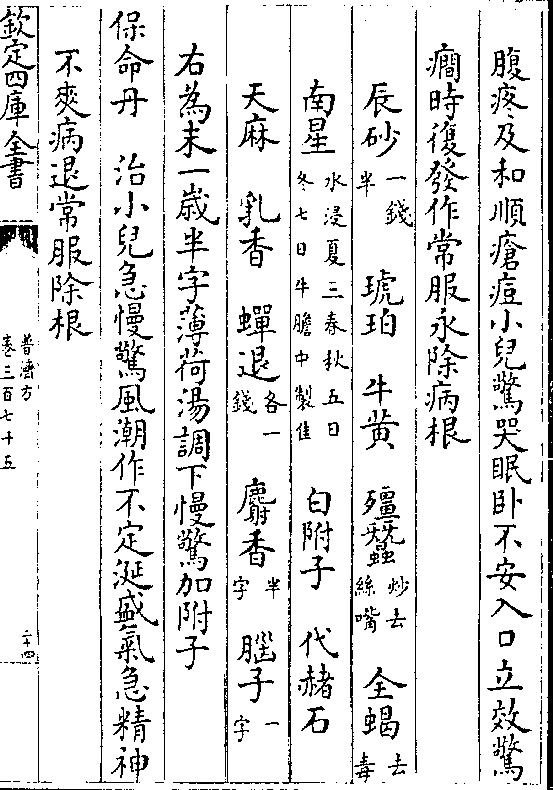 腹疼及和順瘡痘小兒驚哭眠卧不安入口立效驚
癇時復發作常服永除病根
辰砂一錢半 琥珀 牛黄 殭蠶炒去絲嘴 全蝎去毒
南星水浸夏三春秋五日冬七日牛膽中製佳 白附子 代赭石
天麻 乳香 蟬退各一錢 麝香半字 腦子一字
右為末一歳半字薄荷湯調下慢驚加附子
保命丹 治小兒急慢驚風潮作不定涎盛氣急精神
不爽病退常服除根
欽定四庫全書
普濟方
卷三百七十五
二十四